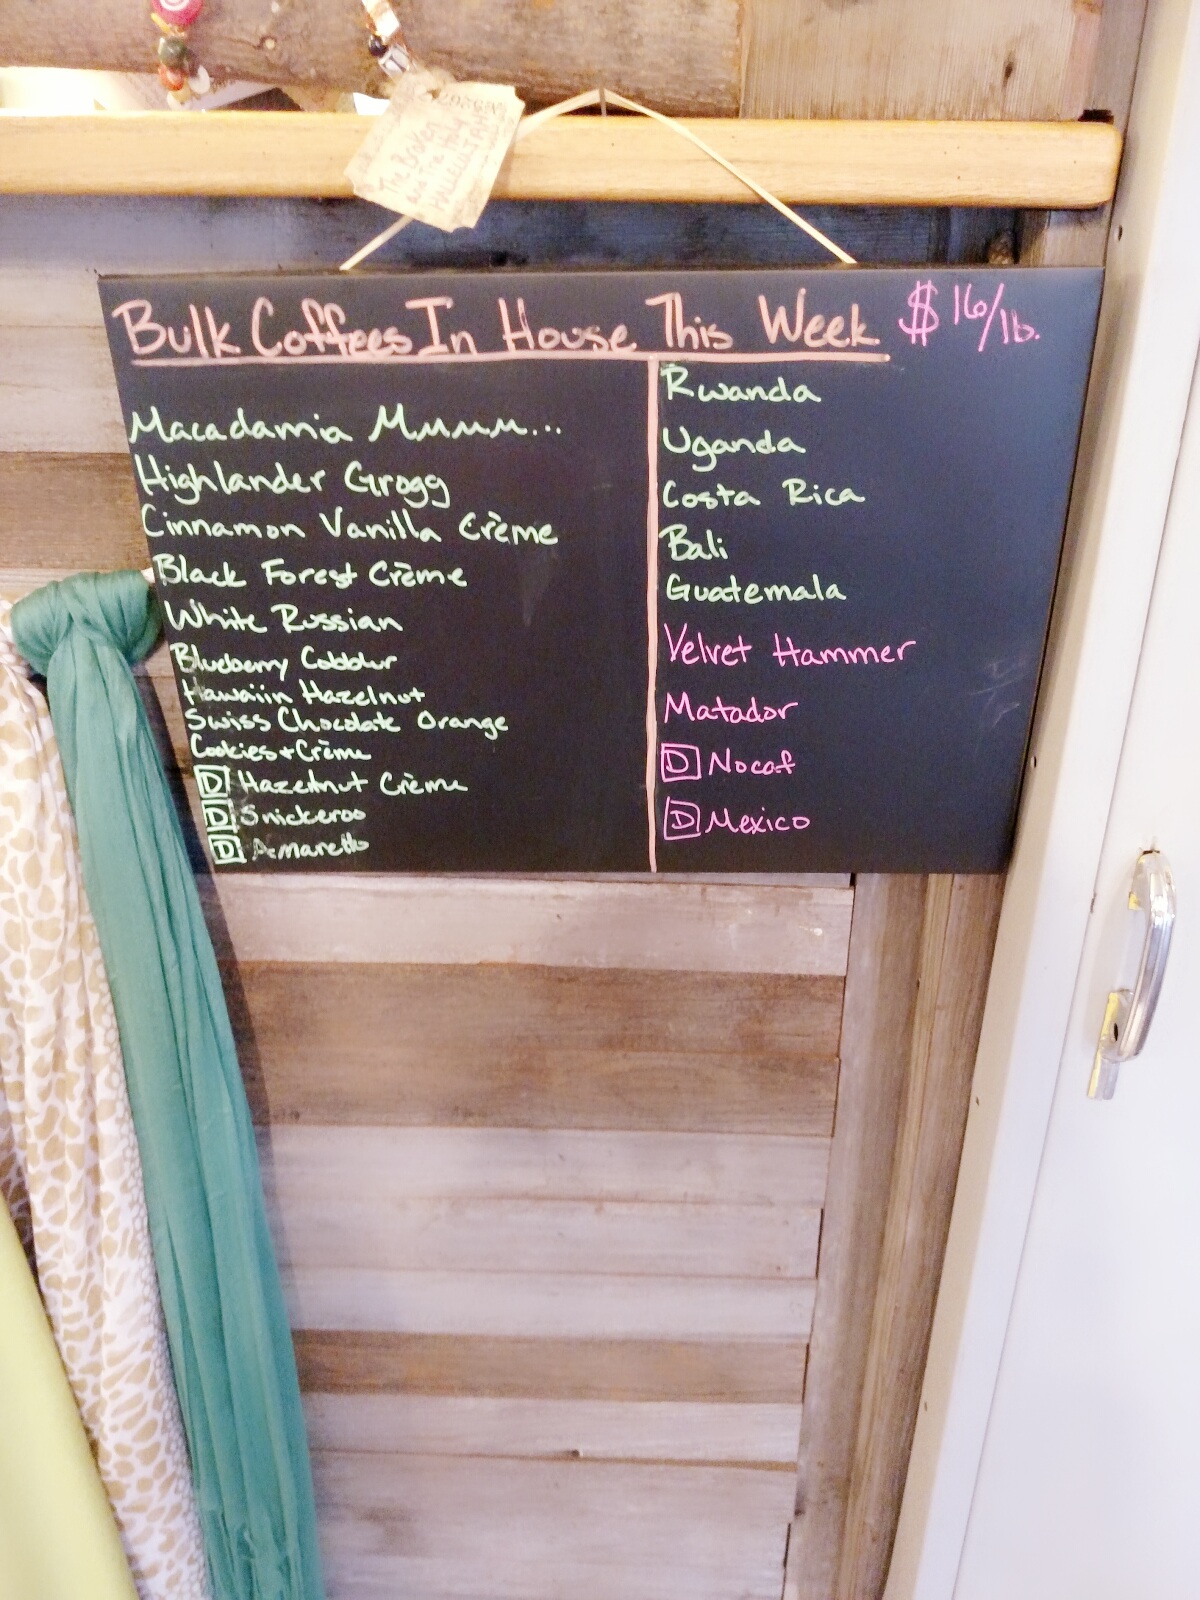 The Broken
HALLELUJAH
Bulk Coffees In House This Week $16/lb.
Macadamia Mmmm...
Highlander Grogg
Cinnamon Vanilla Crème
Black Forest Crème
White Russian
Blueberry Cobbler
Hawaiin Hazelnut
Swiss Chocolate Orange
Cookies + Crème
D Hazelnut Crème
D Snickeroo
D Amaretto
Rwanda
Uganda
Costa Rica
Bali
Guatemala
Velvet Hammer
Matador
D Nocaf
D Mexico